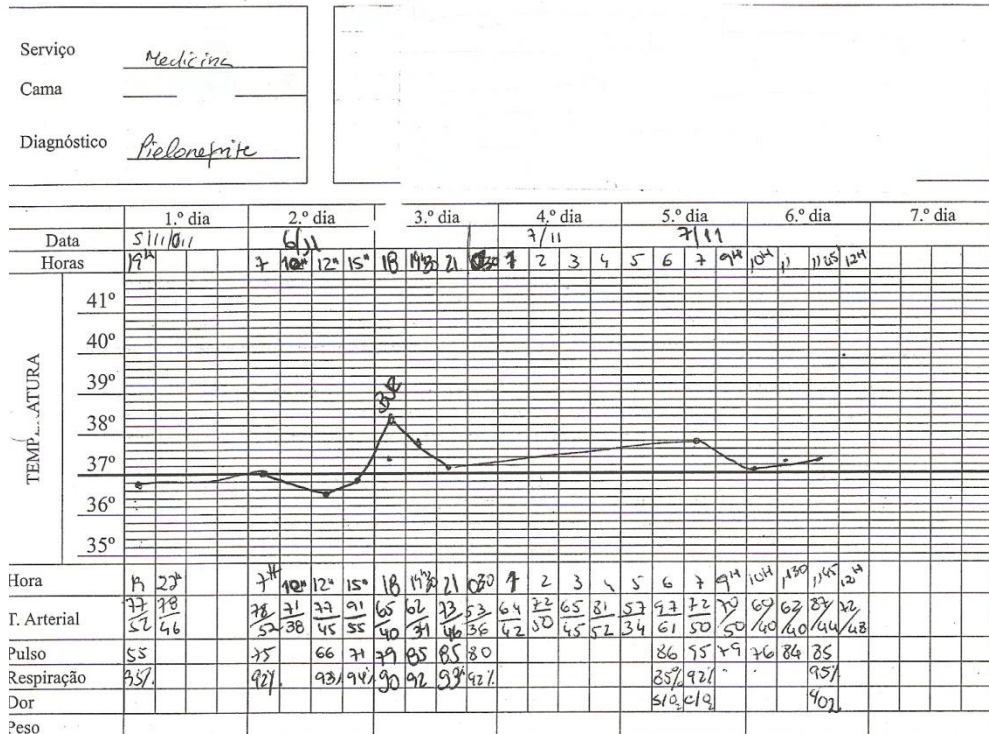 Serviço Medicina
Cama
Diagnóstico Pielonefrite
1.º dia 2.º dia 3.º dia 4.º dia 5.º dia 6.º dia 7.º dia
Data 6/11 7/11 7/11
Horas 19H 7 10H 12H 15H 18 19H30 21 030 1 2 3 4 5 6 7 9H 10H 11 1145 12H
TEMP ATURA
41º
40º
39º
38º
37º
36º
35º
Hora 19 22H 7H 10H 12H 15H 18 19H30 21 030 1 2 3 4 5 6 7 9H 10H 1130 1145 12H
T. Arterial 77/52 78/46 78/52 71/38 77/45 91/55 65/40 62/31 73/46 53/36 64/42 72/50 65/45 81/52 57/34 97/61 72/50 70/50 69/40 62/40 87/44 72/48
Pulso 55 75 66 71 79 85 85 80 86 55 79 76 84 85
Respiração 95% 92% 93% 94% 90 92 93% 92% 85% 92% 95%
Dor S/O2 C/O2
Peso